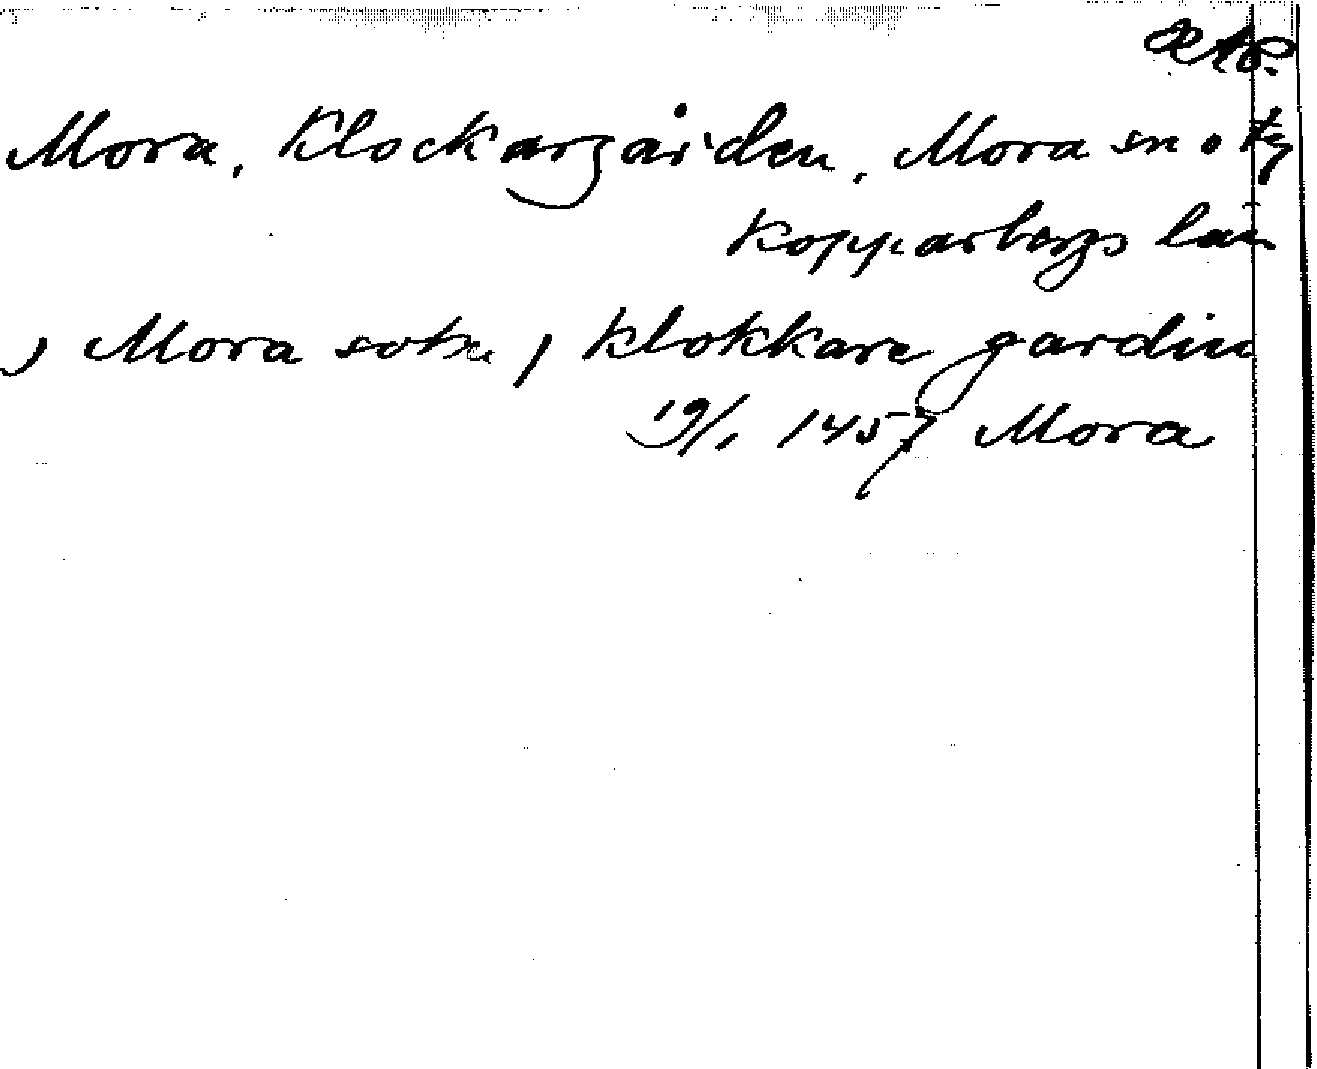 ÆAP.
Mora, Klockargården, Mora sn o tg
Kopparbergs län
) Mora sokn ) klokkare gardin
19/1 1457 Mora